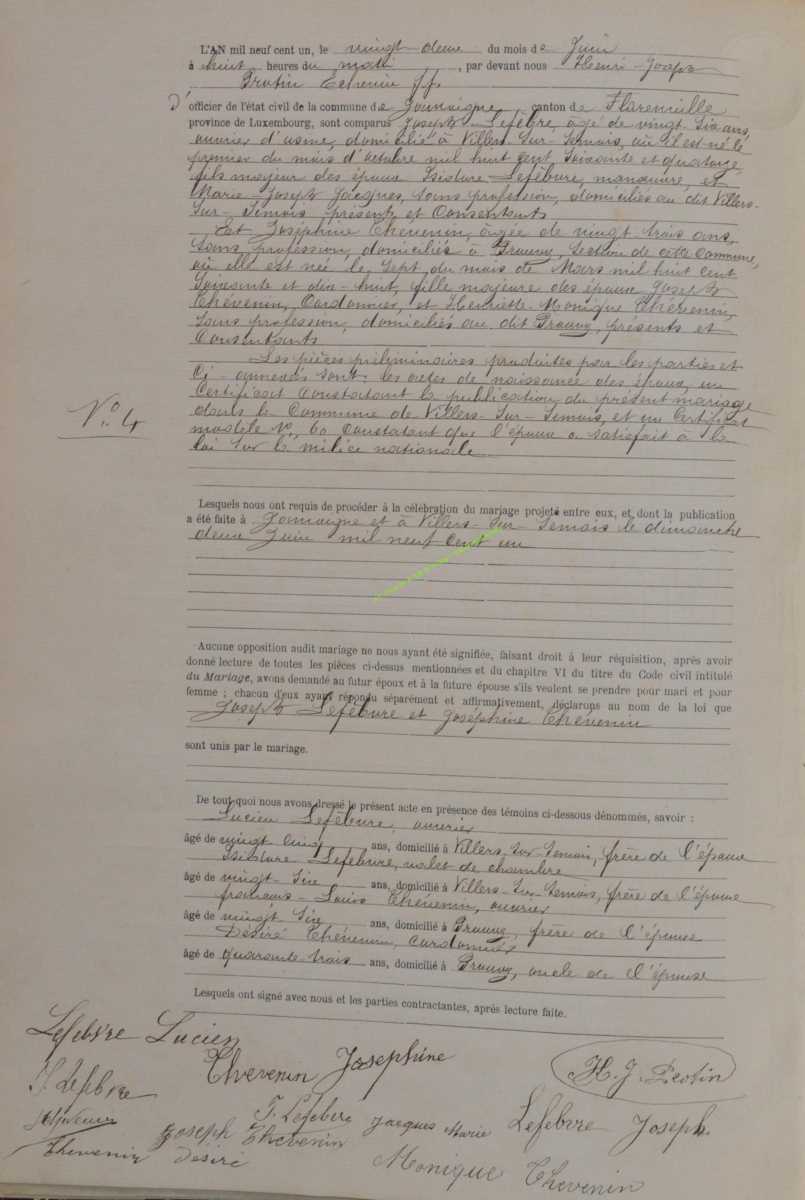 L'AN mil neuf cent un, le vingt deux du mois de Juin
à huit heures du matin, par devant nous Henri-Joseph
Protin Echevin ff.
d'officier de l'état civil de la commune de Jamoigne, canton de Florenville
province de Luxembourg, sont comparus Joseph Lefèbvre, âgé de vingt Six ans,
ouvrier d'usine, domicilié à Villers-Sur-Semois, où il est né le
premier du mois d'octobre mil huit cent Soixante et quatorze
fils majeur des époux Isidore Lefèbvre, manœuvre, et
Marie-Joseph Jacques, Sans profession, domiciliés au dit Villers-
Sur-Semois présents et Consentants
Et Joséphine Thévenin, âgée de vingt trois ans,
Sans profession, domiciliée à Prouvy, Section de cette Commune,
où elle est née le Sept du mois de Mars mil huit cent
Soixante et dix-huit, fille majeure des époux Joseph
Thévenin, Cordonnier, et Henriette-Monique Thévenin,
Sans profession, domiciliés au dit Prouvy, présents et
Consentants
Les pièces préliminaires produites par les parties et
Ci-annexées sont: les actes de naissance des époux, un
Certificat Constatant la publication du présent mariage
dans la Commune de Villers-Sur-Semois, et un Certificat
modèle N° 60 Constatant que l'époux a satisfait à la
loi Sur la milice nationale
N° 4
Lesquels nous ont requis de procéder à la célébration du mariage projeté entre eux, et dont la publication
a été faite à Jamoigne et à Villers-Sur-Semois le dimanche
deux Juin mil neuf Cent un
Aucune opposition audit mariage ne nous ayant été signifiée, faisant droit à leur réquisition, après avoir
donné lecture de toutes les pièces ci-dessus mentionnées et du chapitre VI du titre du Code civil intitulé
du Mariage, avons demandé au futur époux et à la future épouse s'ils veulent se prendre pour mari et pour
femme ; chacun d'eux ayant répondu séparément et affirmativement, déclarons au nom de la loi que
Joseph Lefèbvre et Joséphine Thévenin
sont unis par le mariage.
De tout quoi nous avons dressé le présent acte en présence des témoins ci-dessous dénommés, savoir :
Lucien Lefèbvre, ouvrier
âgé de vingt cinq ans, domicilié à Villers-Sur-Semois, frère de l'époux
Isidore Lefèbvre, valet de chambre
âgé de vingt Six ans, domicilié à Villers-Sur-Semois, frère de l'époux
François-Louis Thévenin, ouvrier
âgé de vingt Six ans, domicilié à Prouvy, frère de l'épouse
Désiré Thévenin, Cordonnier
âgé de quarante trois ans, domicilié à Prouvy, oncle de l'épouse
Lesquels ont signé avec nous et les parties contractantes, après lecture faite.
Lefebvre Lucien
Thevenin Josephine
H. J. Protin
I Lefebvre
Joseph Thevenin
I. Lefebvre
Jacques Marie
Lefebvre Joseph
Thevenin Désiré
Monique Thevenin